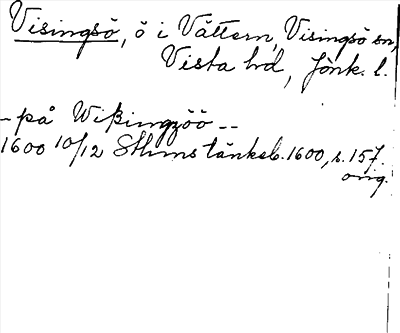 Visingsö, ö i Vättern, Visingsö sn,
Vista hd, Jönk. l.
- på Wißingzöö --
1600 10/12 Sthms tänkeb. 1600, s. 157.
orig.